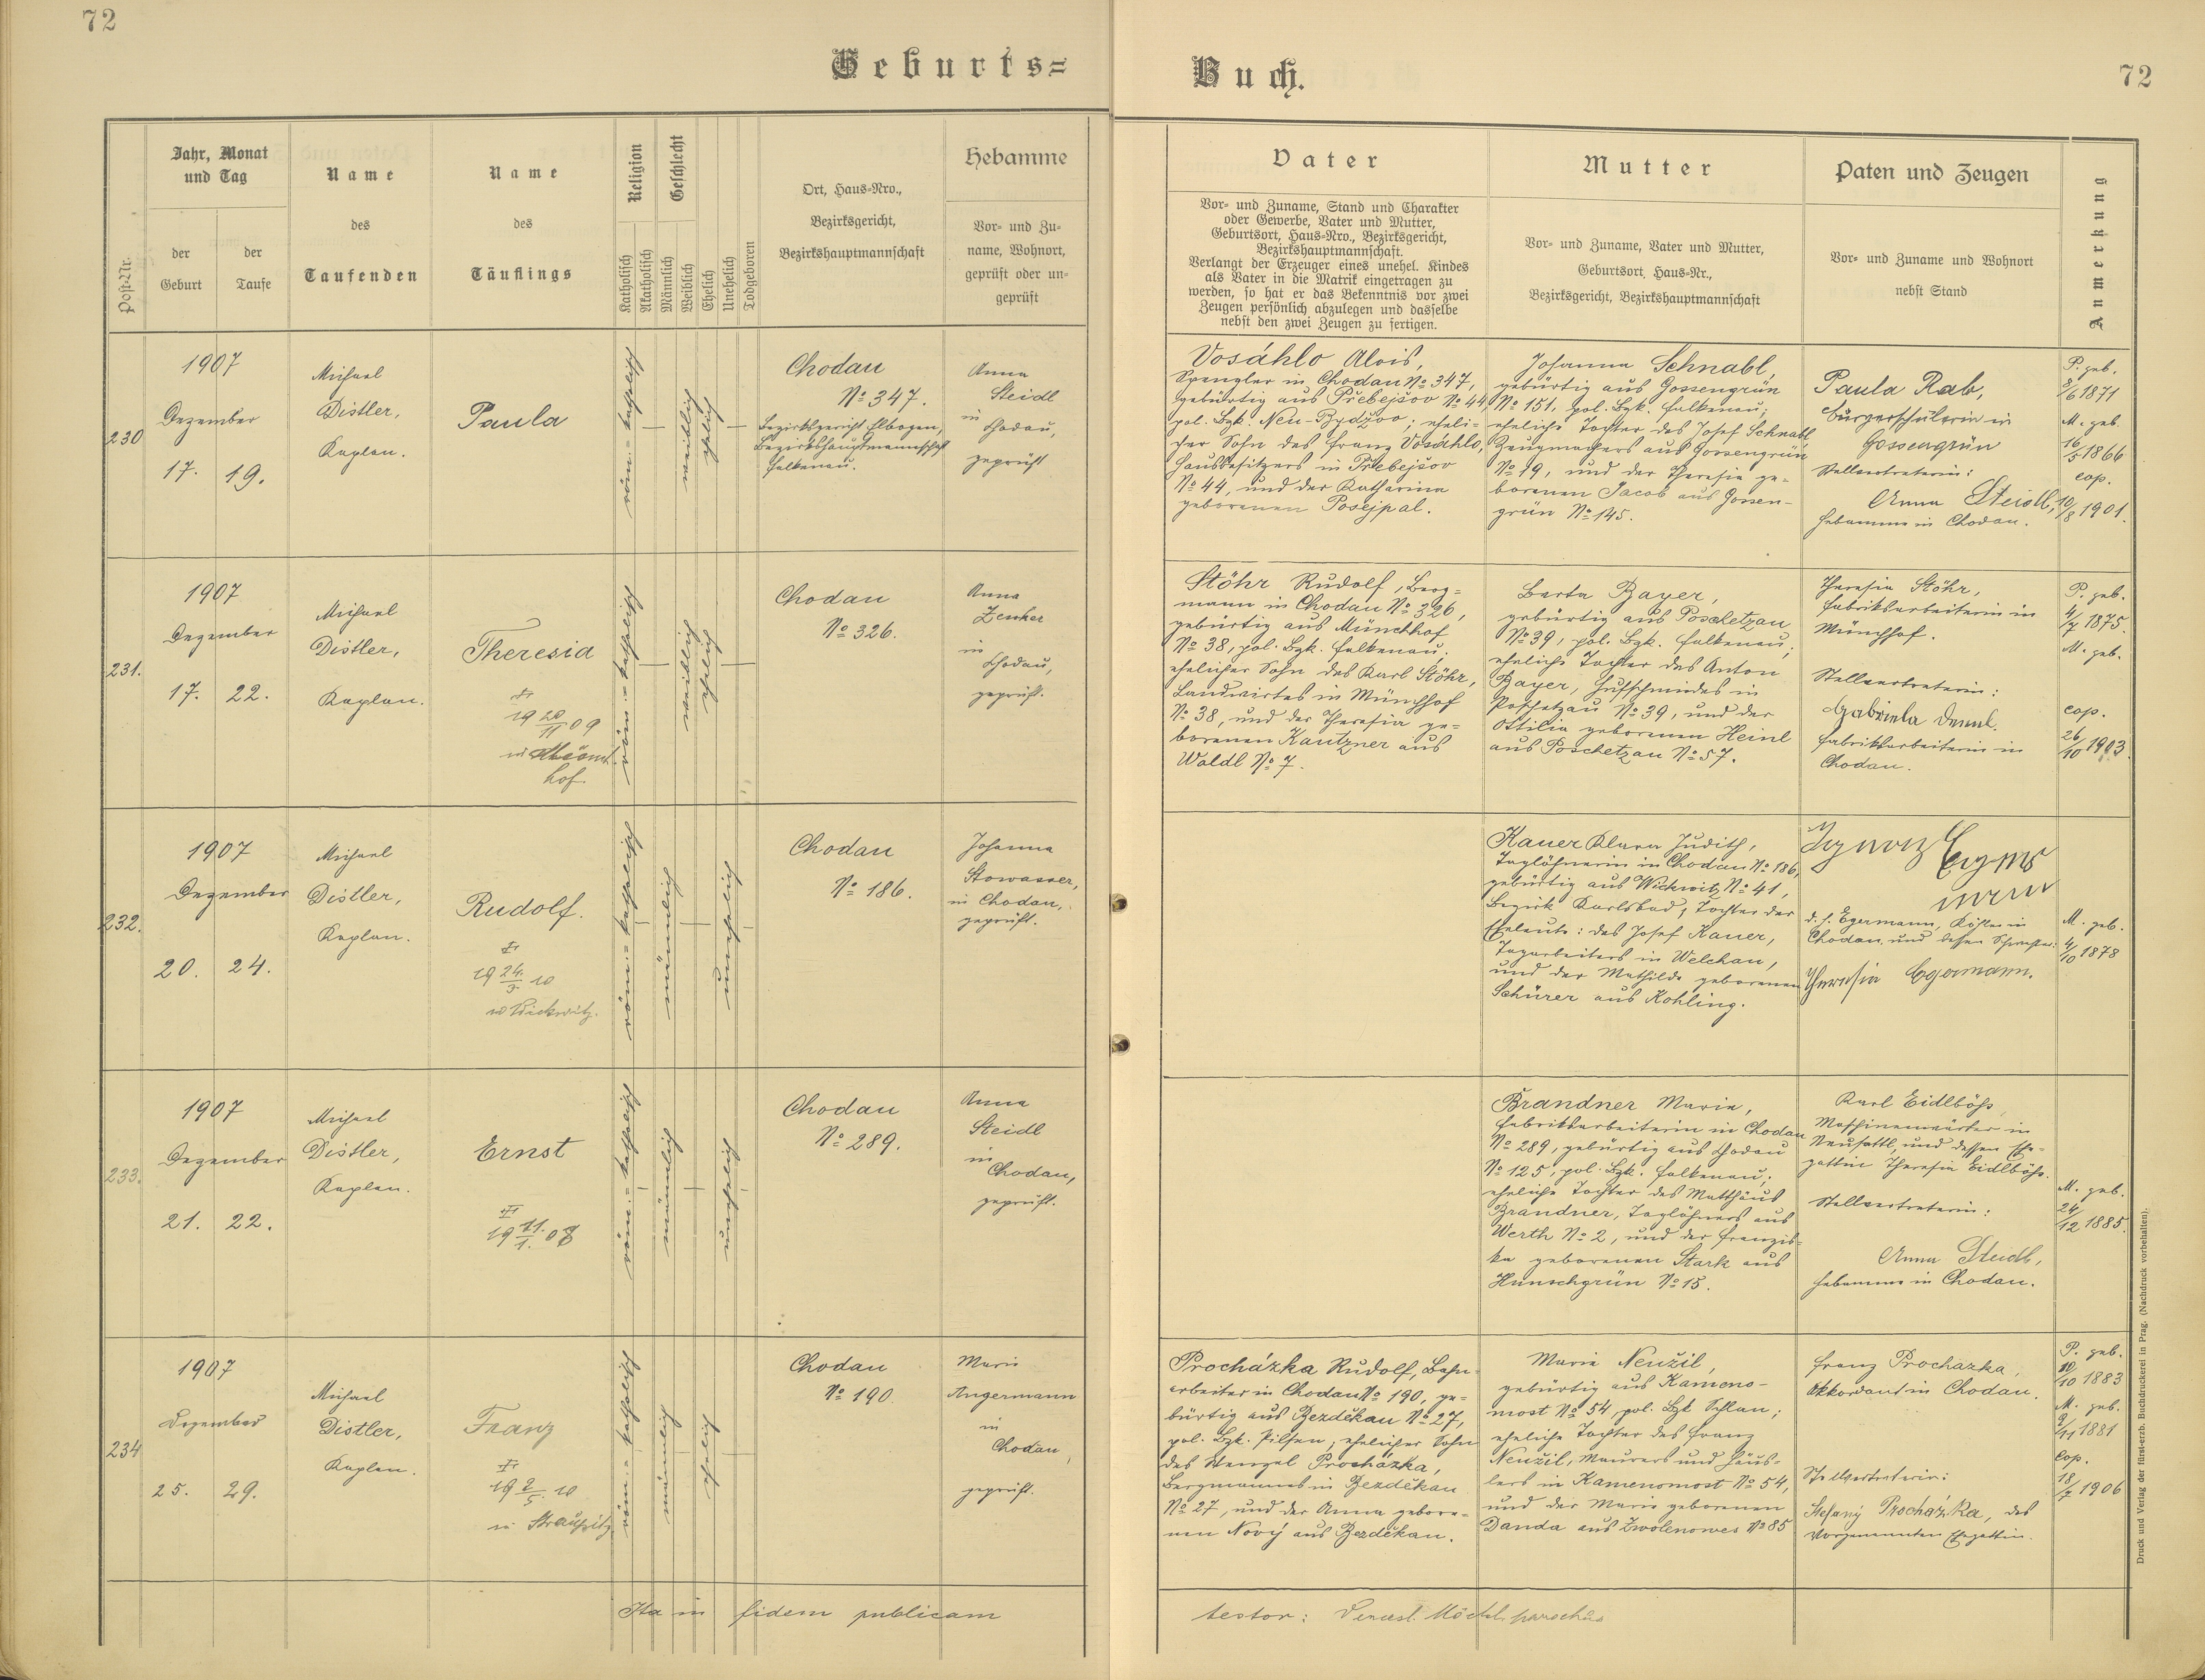 72
Geburts=
Buch.
72
Post-Nr.
Jahr, Monat
und Tag
der
Geburt
der
Taufe
Name
des
Taufenden
Name
des
Täuflings
Religion
Katholisch
Akatholisch
Geschlecht
Männlich
Weiblich
Ehelich
Unehelich
Todgeboren
Ort, Haus-Nro.,
Bezirksgericht,
Bezirkshauptmannschaft
Hebamme
Vor- und Zu-
name, Wohnort,
geprüft oder un-
geprüft
Vater
Vor- und Zuname, Stand und Charakter
oder Gewerbe, Vater und Mutter,
Geburtsort, Haus-Nro., Bezirksgericht,
Bezirkshauptmannschaft.
Verlangt der Erzeuger eines unehel. Kindes
als Vater in die Matrik eingetragen zu
werden, so hat er das Bekenntnis vor zwei
Zeugen persönlich abzulegen und dasselbe
nebst den zwei Zeugen zu fertigen.
Mutter
Vor- und Zuname, Vater und Mutter,
Geburtsort, Haus-Nr.,
Bezirksgericht, Bezirkshauptmannschaft
Paten und Zeugen
Vor- und Zuname und Wohnort
nebst Stand
Anmerkung
230
1907
Dezember
17. 19.
Michael
Distler,
Kaplan.
Paula
röm.= katholisch
weiblich
ehelich
Chodau
No 347.
Bezirksgericht Elbogen,
Bezirkshauptmannschaft
Falkenau.
Anna
Steidl
in
Chodau,
geprüft
Vosáhlo Alois,
Spengler in Chodau No 347,
gebürtig aus Přebejšov No 44,
pol. Bzk. Neu-Bydžov; eheli-
cher Sohn des Franz Vosáhlo,
Hausbesitzers in Přebejšov
No 44, und der Katharina
geborenen Posejpal.
Johanna Schnabl,
gebürtig aus Gossengrün
No 151, pol. Bzk. Falkenau;
eheliche Tochter des Josef Schnabl,
Zeugmachers aus Gossengrün
No 19, und der Theresia ge-
borenen Jacob aus Gossen-
grün No 145.
Paula Rab,
Bürgerschülerin in
Gossengrün
Stellvertreterin:
Anna Steidl,
Hebamme in Chodau.
P. geb.
8/6 1871
M. geb.
16/5 1866
cop.
10/8 1901.
231.
1907
Dezember
17. 22.
Michael
Distler,
Kaplan.
Theresia
†
19 20/11 09
in Münch
hof
röm.= katholisch
weiblich
ehelich
Chodau
No 326.
Anna
Zenker
in
Chodau,
geprüft.
Stöhr Rudolf, Berg-
mann in Chodau No 326,
gebürtig aus Münchhof
No 38, pol. Bzk. Falkenau;
ehelicher Sohn des Karl Stöhr,
Landwirtes in Münchhof
No 38, und der Theresia ge-
borenen Kautzner aus
Waldl No 7.
Berta Bayer,
gebürtig aus Poschetzau
No 39, pol. Bzk. Falkenau;
eheliche Tochter des Anton
Bayer, Hufschmiedes in
Poschetzau No 39, und der
Ottilia geborenen Heinl
aus Poschetzau No 57.
Theresia Stöhr,
Fabriksarbeiterin in
Münchhof.
Stellvertreterin:
Gabriela
Fabriksarbeiterin in
Chodau.
P. geb.
4/7 1875.
M. geb.
cop.
26/10 1903.
232.
1907
Dezember
20. 24.
Michael
Distler,
Kaplan.
Rudolf.
†
19 24./3. 10
in Wickwitz.
röm.= katholisch
männlich
unehelich
Chodau
No 186.
Johanna
Stowasser,
in Chodau,
geprüft.
Kauer Klara Judith,
Taglöhnerin in Chodau No 186,
gebürtig aus Wickwitz No 41,
Bezirk Karlsbad, Tochter der
Eheleute: des Josef Kauer,
Tagarbeiters in Welchau,
und der Mathilde geborenen
Schürer aus Kohling.
Ignaz Eger
mann
d. h. Egermann, Köhler in
Chodau und dessen Schwester:
Theresia Egermann.
M. geb.
4/10 1878
233.
1907
Dezember
21. 22.
Michael
Distler,
Kaplan.
Ernst
†
19 11./1. 08
röm.= katholisch
männlich
unehelich
Chodau
No 289.
Anna
Steidl
in
Chodau,
geprüft.
Brandner Maria,
Fabriksarbeiterin in Chodau
No 289, gebürtig aus Chodau
No 125, pol. Bzk. Falkenau;
eheliche Tochter des Matthäus
Brandner, Taglöhners aus
Werth No 2, und der Franzis-
ka geborenen Stark aus
Hunschgrün No 15.
Karl Eidlböhs,
Maschinenwärter in
Neusattl, und dessen Ehe-
gattin Theresia Eidlböhs.
Stellvertreterin:
Anna Steidl,
Hebamme in Chodau.
M. geb.
24/12 1885.
234
1907
Dezember
25. 29.
Michael
Distler,
Kaplan.
Franz
†
19 2/5. 10
in
röm.= katholisch
männlich
ehelich
Chodau
No 190.
Marie
Angermann
in
Chodau,
geprüft.
Procházka Rudolf, Bahn-
arbeiter in Chodau No 190, ge-
bürtig aus Bezděkau No 27,
pol. Bzk. Pilsen, ehelicher Sohn
des Wenzel Procházka,
Bergmannes in Bezděkau
No 27, und der Anna gebore-
nen Nový aus Bezděkau.
Marie Neužil,
gebürtig aus Kameno-
most No 54 pol. Bzk Schlan;
eheliche Tochter des Franz
Neužil, Maurers und Häus-
lers in Kamenomost No 54,
und der Marie geborenen
Danda aus Zwolenowes No 85
Franz Prochazka,
Akkordant in Chodau.
Stellvertreterin:
Stefany Procházka, des
Vorgenannten Ehegattin.
P. geb.
10/10 1883
M. geb.
9/11 1881
cop.
18/7 1906
Ita in fidem publicam
testor: Venzesl. Möchl, parochus
Druck und Verlag der fürst-erzb. Buchdruckerei in Prag. (Nachdruck vorbehalten).